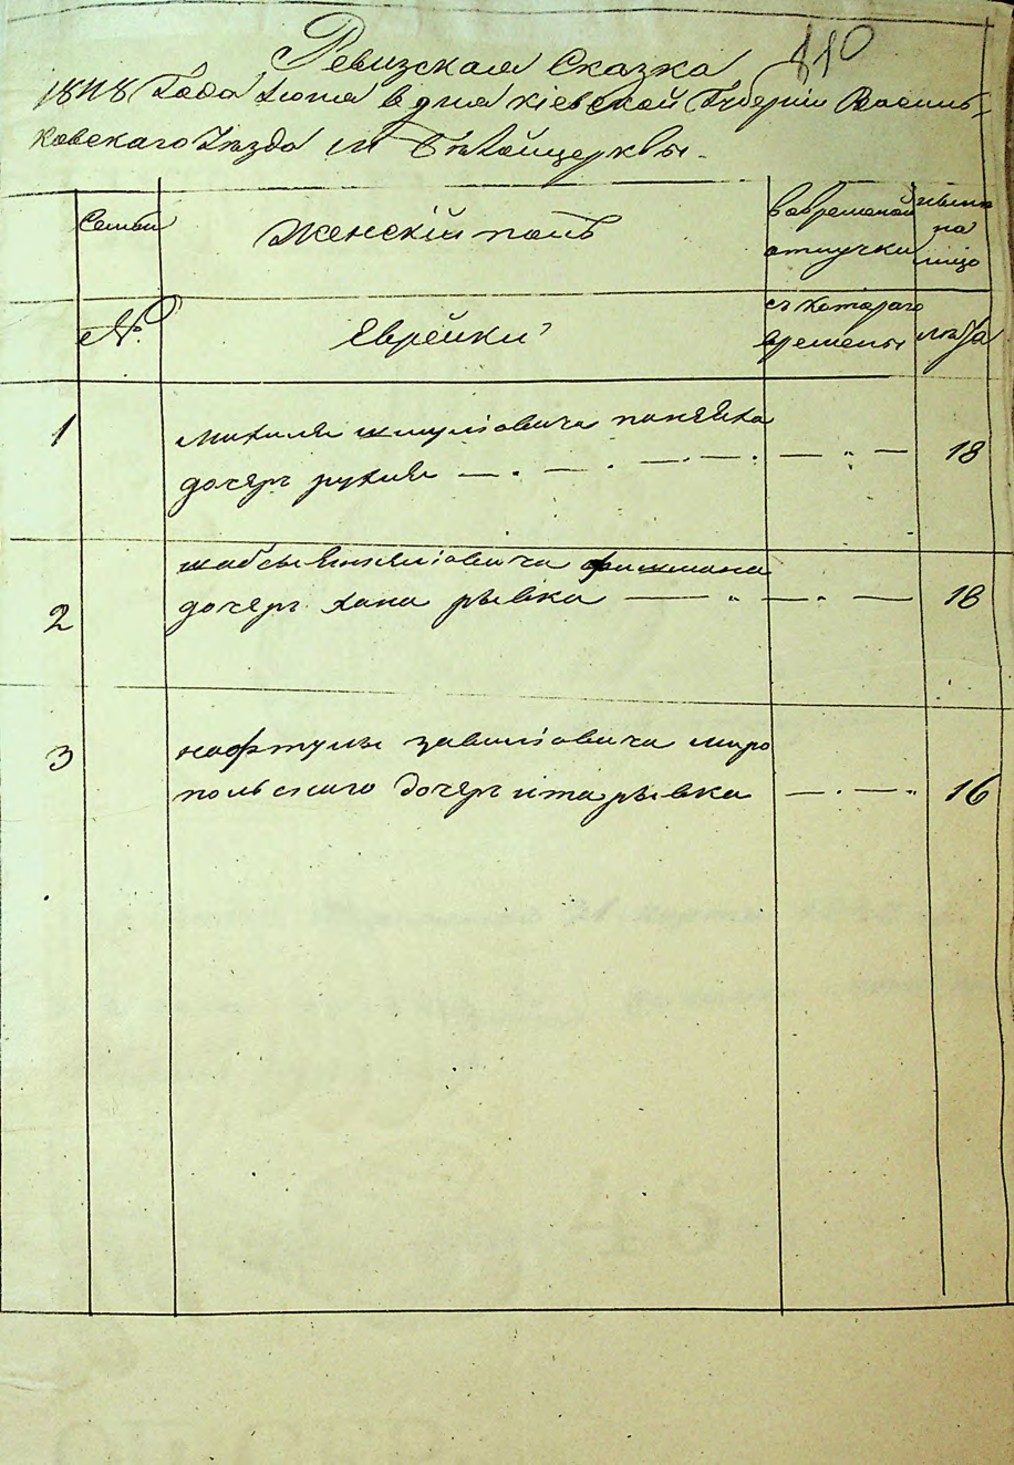 110
Ревизская Сказка
1848 Года Июня 8 дня кіевской Губерніи Василь-
ковскаго Уезда м Белойцерквы.
Семьи
Женскій полъ
Во временной
отлучки
ныне
на
лицо
№.
Еврейки
съ котораго
времены
лета
1
Михиля шмуліовича
дочерь рухля — . — . — . — . — „ —
18
2
шабсы Янкеліовича фишмана
дочерь хана рывка — „ — . —
18
3
нафтулы завиліовича миро
польскаго дочерь ита рывка — . — „
16